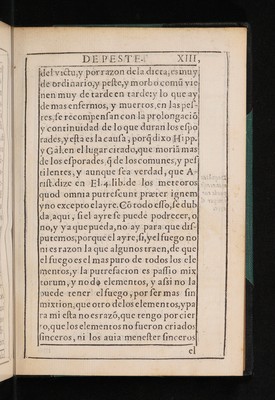 DE PESTE. XIII.
del victu, y por razon de la dieta, es muy
de ordinario, y peste, y morbo comũ vie
nen muy de tarde en tarde: y lo que ay
de mas enfermos, y muertos, en las pes-
tes, se recompensan con la prolongaciõ
y continuidad de lo que duran los espo
rades, y esta es la causa, porq̃ dixo Hipp.
y Gal. en el lugar citado, que moriã mas
de los esporades q̃ de los comunes, y pes
tilentes, y aunque sea verdad, que A-
rist. dize en El. 4. lib. de los meteoros
quod omnia putrescunt præter ignem
y no excepto el ayre. Cõ todo esso, se dub
da, aqui, si el ayre se puede podrecer, o
no, y ya que pueda, no ay para que dis-
putemos, porque el ayre, si, y el fuego no
ni es razon la que algunos traen, de que
el fuego es el mas puro de todos los ele
mentos, y la putrefacion es passio mix
torum, y no de elementos, y assi no la
puede tener el fuego, por ser mas sin
mixtion, que otro de los elementos, y pa
ra mi esta no es razõ, que tengo por cier
to, que los elementos no fueron criados
sinceros, ni los auia menester sinceros
el